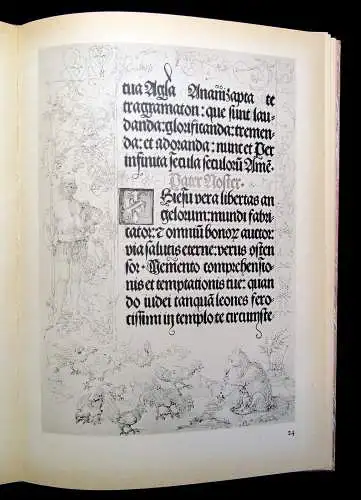 tua Agla Anamzapta te
tragramaton: que sunt lau-
danda: glorificanda: tremen
da: et adoranda: nunc et Per
infinita secula seculorū Amē.
Pater Noster.
O Hiesu vera libertas an
gelorum: mundi fabri
cator: et omniū bonorꝝ auctor:
via salutis eterne: verus osten
sor. Memento comprehensio
nis et temptationis tue: quan
do iudei tanquā leones fero
cissimi in templo te circumste
24